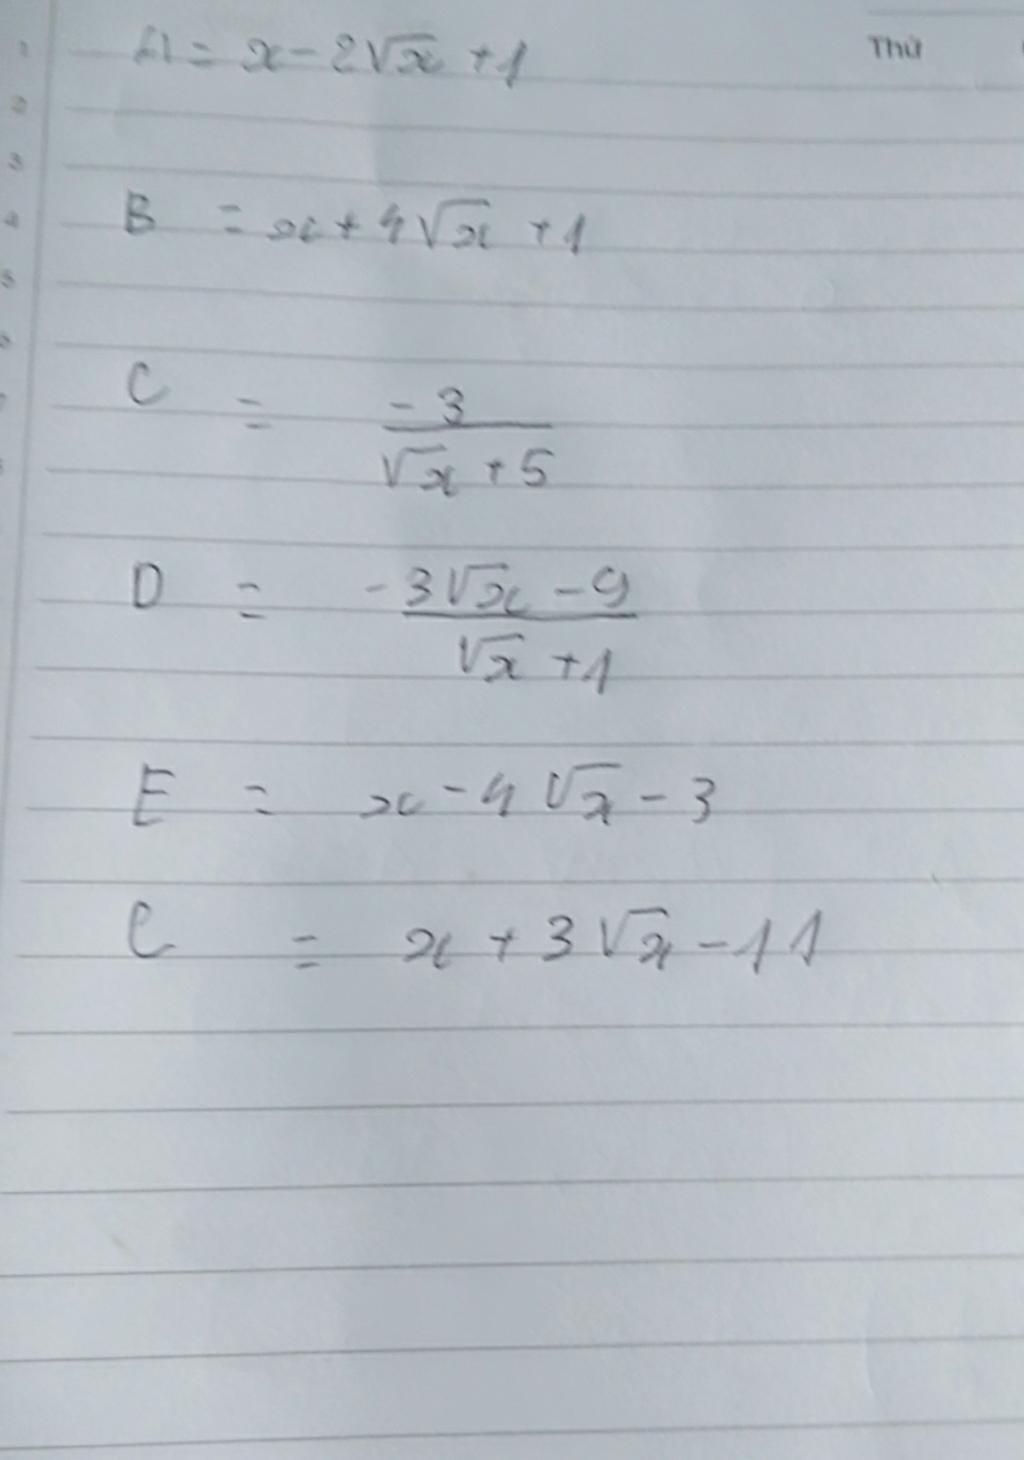 A = x - 2√x + 1
Thứ
B = x + 4√x + 1
C = -3 / (√x + 5)
D = (-3√x - 9) / (√x + 1)
E = x - 4√x - 3
C = x + 3√x - 11